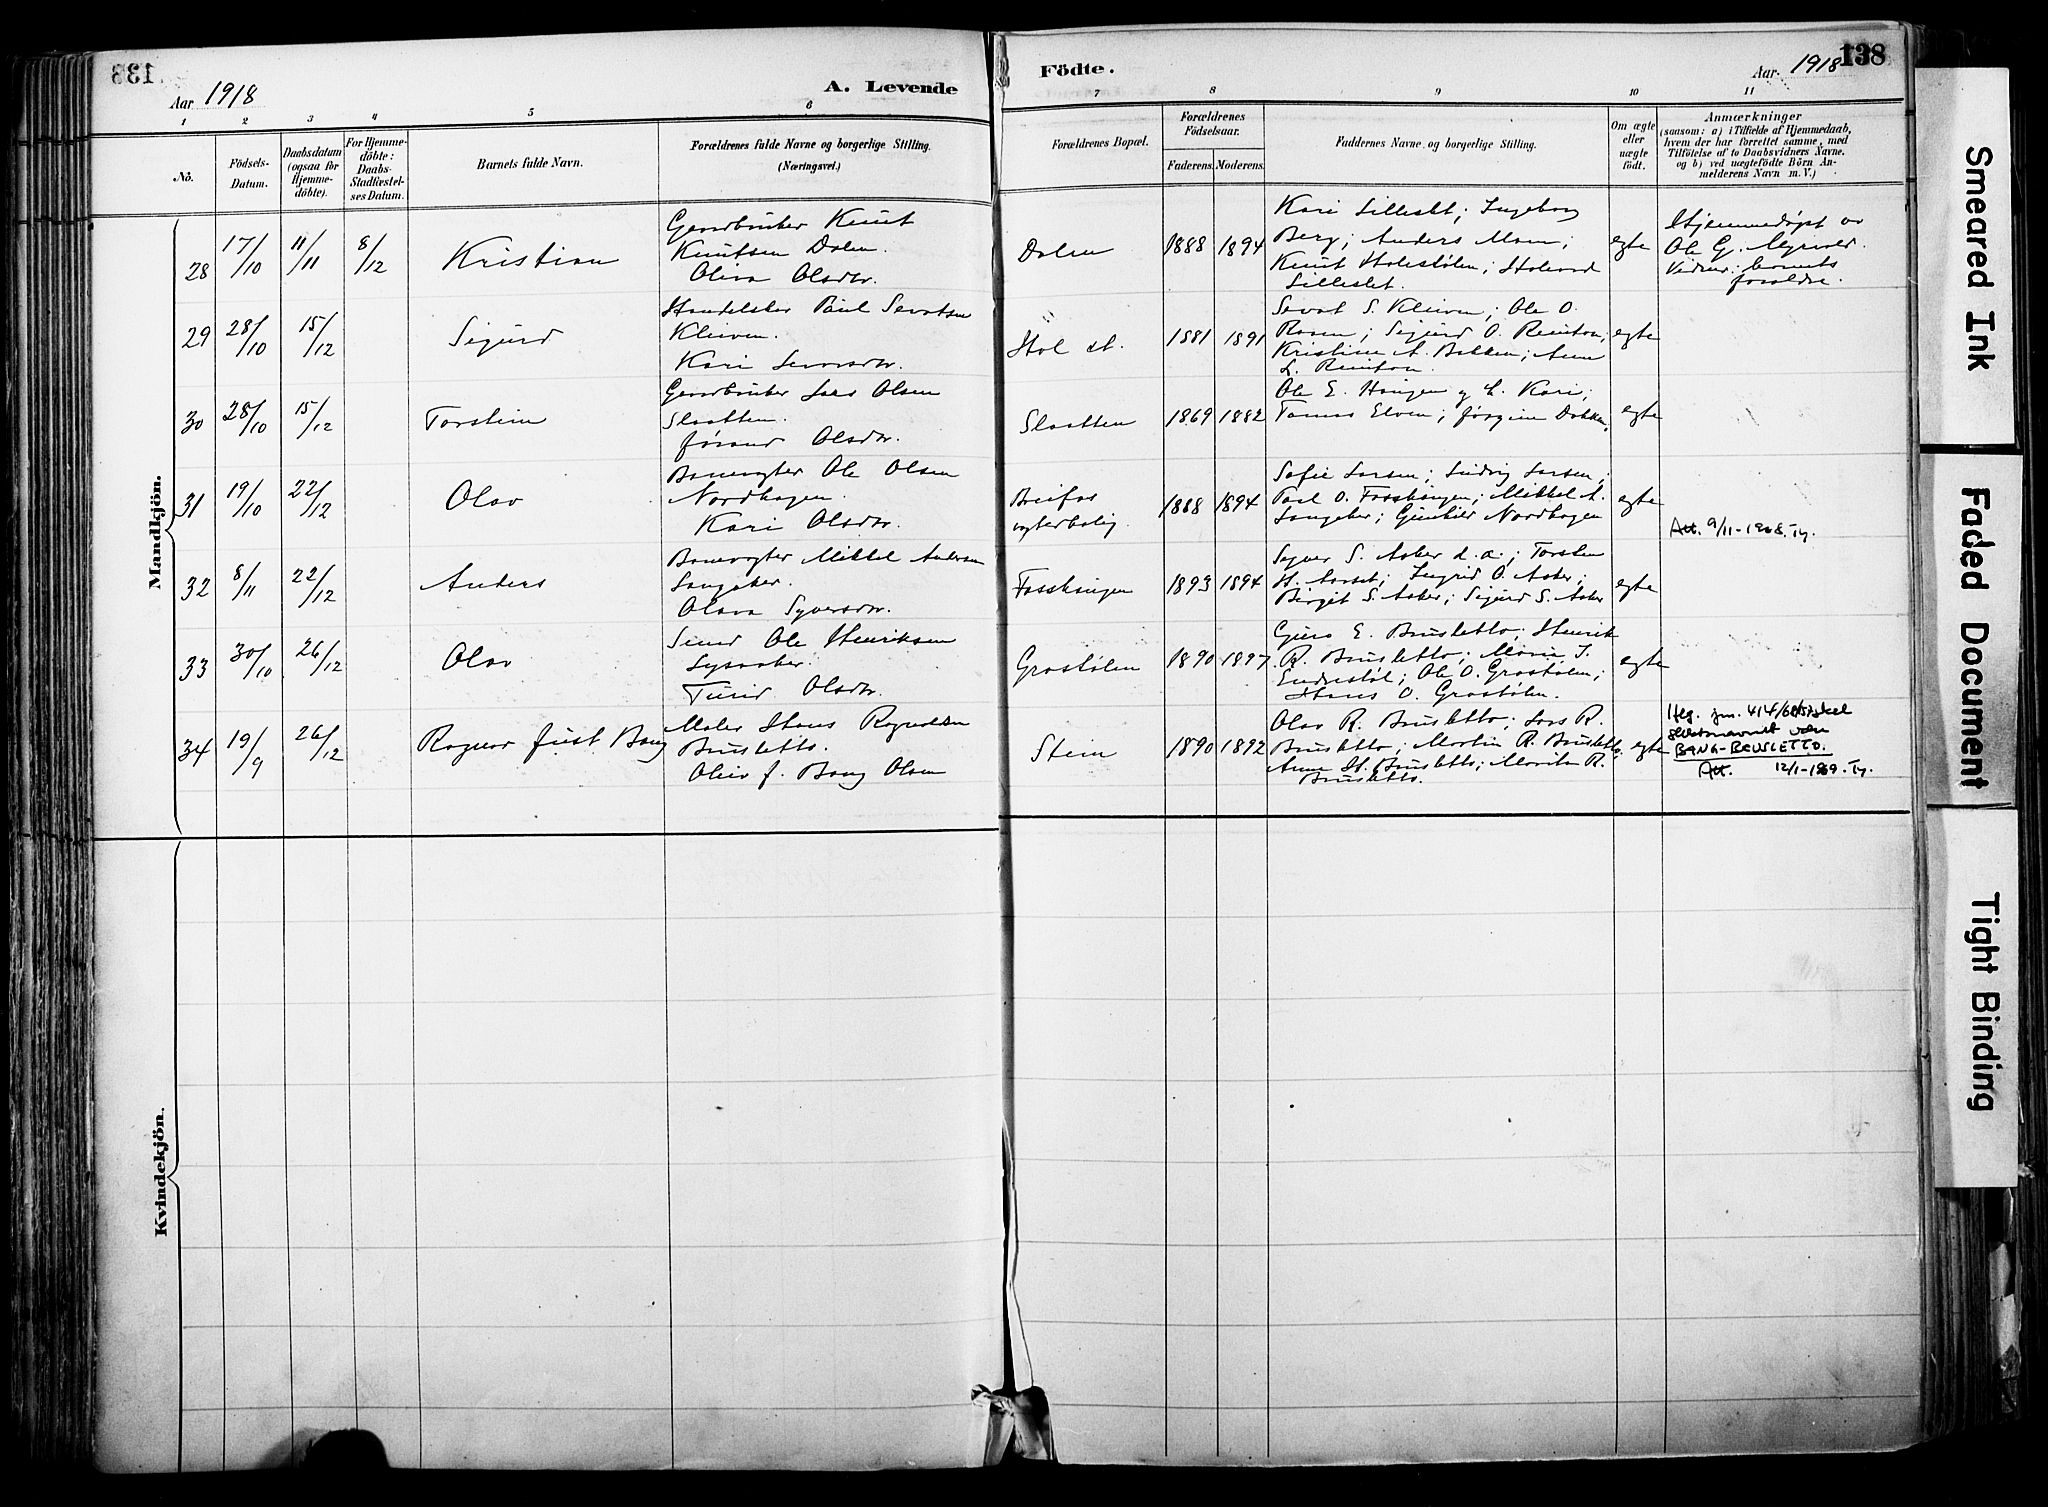 138
Aar 1918
A. Levende
Födte.
Aar. 1918
1 2 3 4 5 6 7 8 9 10 11
No.
Födsels-
Datum.
Daabsdatum
(ogsaa for
Hjemme-
döbte).
For Hjemme-
döbte:
Daabs-
Stadfæstel-
ses Datum.
Barnets fulde Navn.
Forældrenes fulde Navne og borgerlige Stilling.
(Næringsvei.)
Forældrenes Bopæl.
Forældrenes
Födselsaar.
Faderens. Moderens.
Faddernes Navne og borgerlige Stilling.
Om ægte
eller
uægte
födt.
Anmærkninger
(saasom: a) i Tilfælde af Hjemmedaab,
hvem der har forrettet samme, med
Tilföielse af to Daabsvidners Navne.
og b) ved uægtefödte Börn An-
melderens Navn m. V.)
Mandkjön.
28 17/10 11/11 8/12 Kristian
Gaardbruker Knut
Knutsen Dalen.
Oliva Olsdtr.
Dalen 1888 1894
Kari Lilleslet; Ingeborg
Berg; Anders Moen;
Knut Holestølen; Halvard
Lilleslet.
egte
Hjemmedøpt av
Ole G. Myrvold.
Vidner: barnets
forældre.
29 28/10 15/12 Sigurd
Handelsber Paul Sevatsen
Kleiven.
Kari Larsdtr.
Hol st. 1881 1891
Sevat S. Kleiven; Ole O.
Roen; Sigurd O. Reinton;
Kristine A. Bakken; Anne
L. Reinton.
egte
30 28/10 15/12 Torstein
Gaardbruker Lars Olsen
Slaatten.
Jørand Olsdtr.
Slaatten 1869 1882
Ole E. Haugen og h. Kari;
Tomas Elven; Jørgine Dokken.
egte
31 19/10 22/12 Olav
Banevogter Ole Olsen
Nordhagen.
Kari Olsdtr.
Breifos
vogterbolig. 1888 1894
Sofie Larsen; Ludvig Larsen;
Paul O. Fosshaugen; Mikkel A.
Langaker; Gunhild Nordhagen
egte
Att. 9/11-1968. Ty.
32 8/11 22/12 Anders
Banevogter Mikkel Andersen
Langaker.
Olava Syversdtr.
Fosshaugen 1893 1894
Syver S. Aaker d. æ.; Torsten
H. Aarset; Ingrid O. Aaker;
Birgit S. Aaker; Sigurd S. Aaker
egte
33 30/10 26/12 Olav
Smed Ole Henriksen
Lysaaker.
Turid Olsdtr.
Grøstølen 1890 1897
Guro E. Brusletto; Henrik
R. Brusletto; Marie T.
Endrestøl; Ole O. Grøstølen;
Hans O. Grøstølen.
egte
34 19/9 26/12 Ragnar Just Bang
Maler Hans Ragnvaldsen
Brusletto.
Oleiv J. Bang Olsen
Stein 1890 1892
Olav R. Brusletto; Lars R.
Brusletto; Martin R. Brusletto;
Anne H. Brusletto; Marita R.
Brusletto.
egte
slektsnavnet være
BANG-BRUSLETTO.
Att. 12/1-1969. Ty.
Kvindekjön.
138
Smeared Ink
Faded Document
Tight Binding